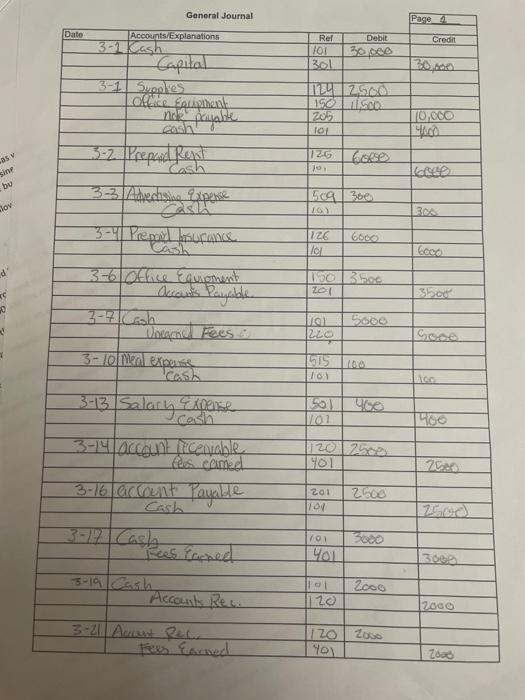 General Journal
Page 1
Date Accounts/Explanations Ref Debit Credit
3-1 Cash 101 30,000
Capital 301 30,000
3-1 Supplies 124 2500
Office Equipment 150 11,500
note payable 205 10,000
cash 101 4000
3-2 Prepaid Rent 125 6000
Cash 101 6000
3-3 Advertising Expense 509 300
Cash 101 300
3-4 Prepaid Insurance 126 6000
Cash 101 6000
3-6 Office Equipment 150 3500
Accounts Payable 201 3500
3-7 Cash 101 5000
Unearned Fees 220 5000
3-10 Meal expense 515 100
Cash 101 100
3-13 Salary Expense 501 400
Cash 101 400
3-14 account receivable 120 2500
fees earned 401 2500
3-16 account Payable 201 2500
Cash 101
3-17 Cash 101 3000
Fees Earned 401 3000
3-19 Cash 101 2000
Accounts Rec. 120 2000
3-21 Account Rec. 120 2000
Fees Earned 401 2000